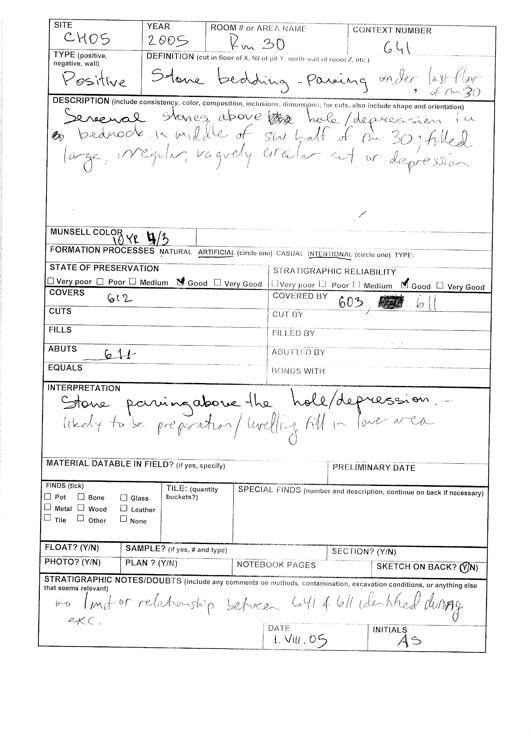 SITE YEAR ROOM # or AREA NAME CONTEXT NUMBER
CH05 2005 Rm 30 641
TYPE (positive, negative, wall) DEFINITION (cut in floor of X, fill of pit Y, north wall of room Z, etc.)
Positive Stone bedding - Paving under last floor of rm 30
DESCRIPTION (include consistency, color, composition, inclusions, dimensions; for cuts, also include shape and orientation)
Several stones above hole/depression in
bedrock in middle of SW half of rm 30; filled
large, irregular, vaguely circular cut or depression
MUNSELL COLOR
10YR 4/3
FORMATION PROCESSES NATURAL ARTIFICIAL (circle one) CASUAL INTENTIONAL (circle one) TYPE:
STATE OF PRESERVATION STRATIGRAPHIC RELIABILITY
Very poor Poor Medium Good Very Good Very poor Poor Medium Good Very Good
COVERS 612 COVERED BY 603, 611
CUTS CUT BY
FILLS FILLED BY
ABUTS 611 ABUTTED BY
EQUALS BONDS WITH
INTERPRETATION
Stone paving above the hole/depression. -
likely to be preparation/levelling fill in lower area
MATERIAL DATABLE IN FIELD? (if yes, specify) PRELIMINARY DATE
FINDS (tick) TILE: (quantity buckets?) SPECIAL FINDS (number and description, continue on back if necessary)
Pot Bone Glass
Metal Wood Leather
Tile Other None
FLOAT? (Y/N) SAMPLE? (if yes, # and type) SECTION? (Y/N)
PHOTO? (Y/N) PLAN ? (Y/N) NOTEBOOK PAGES SKETCH ON BACK? (Y/N)
STRATIGRAPHIC NOTES/DOUBTS (include any comments on methods, contamination, excavation conditions, or anything else
that seems relevant)
no limit or relationship between 641 & 611 identified during
exc.
DATE INITIALS
1.VIII.05 AS